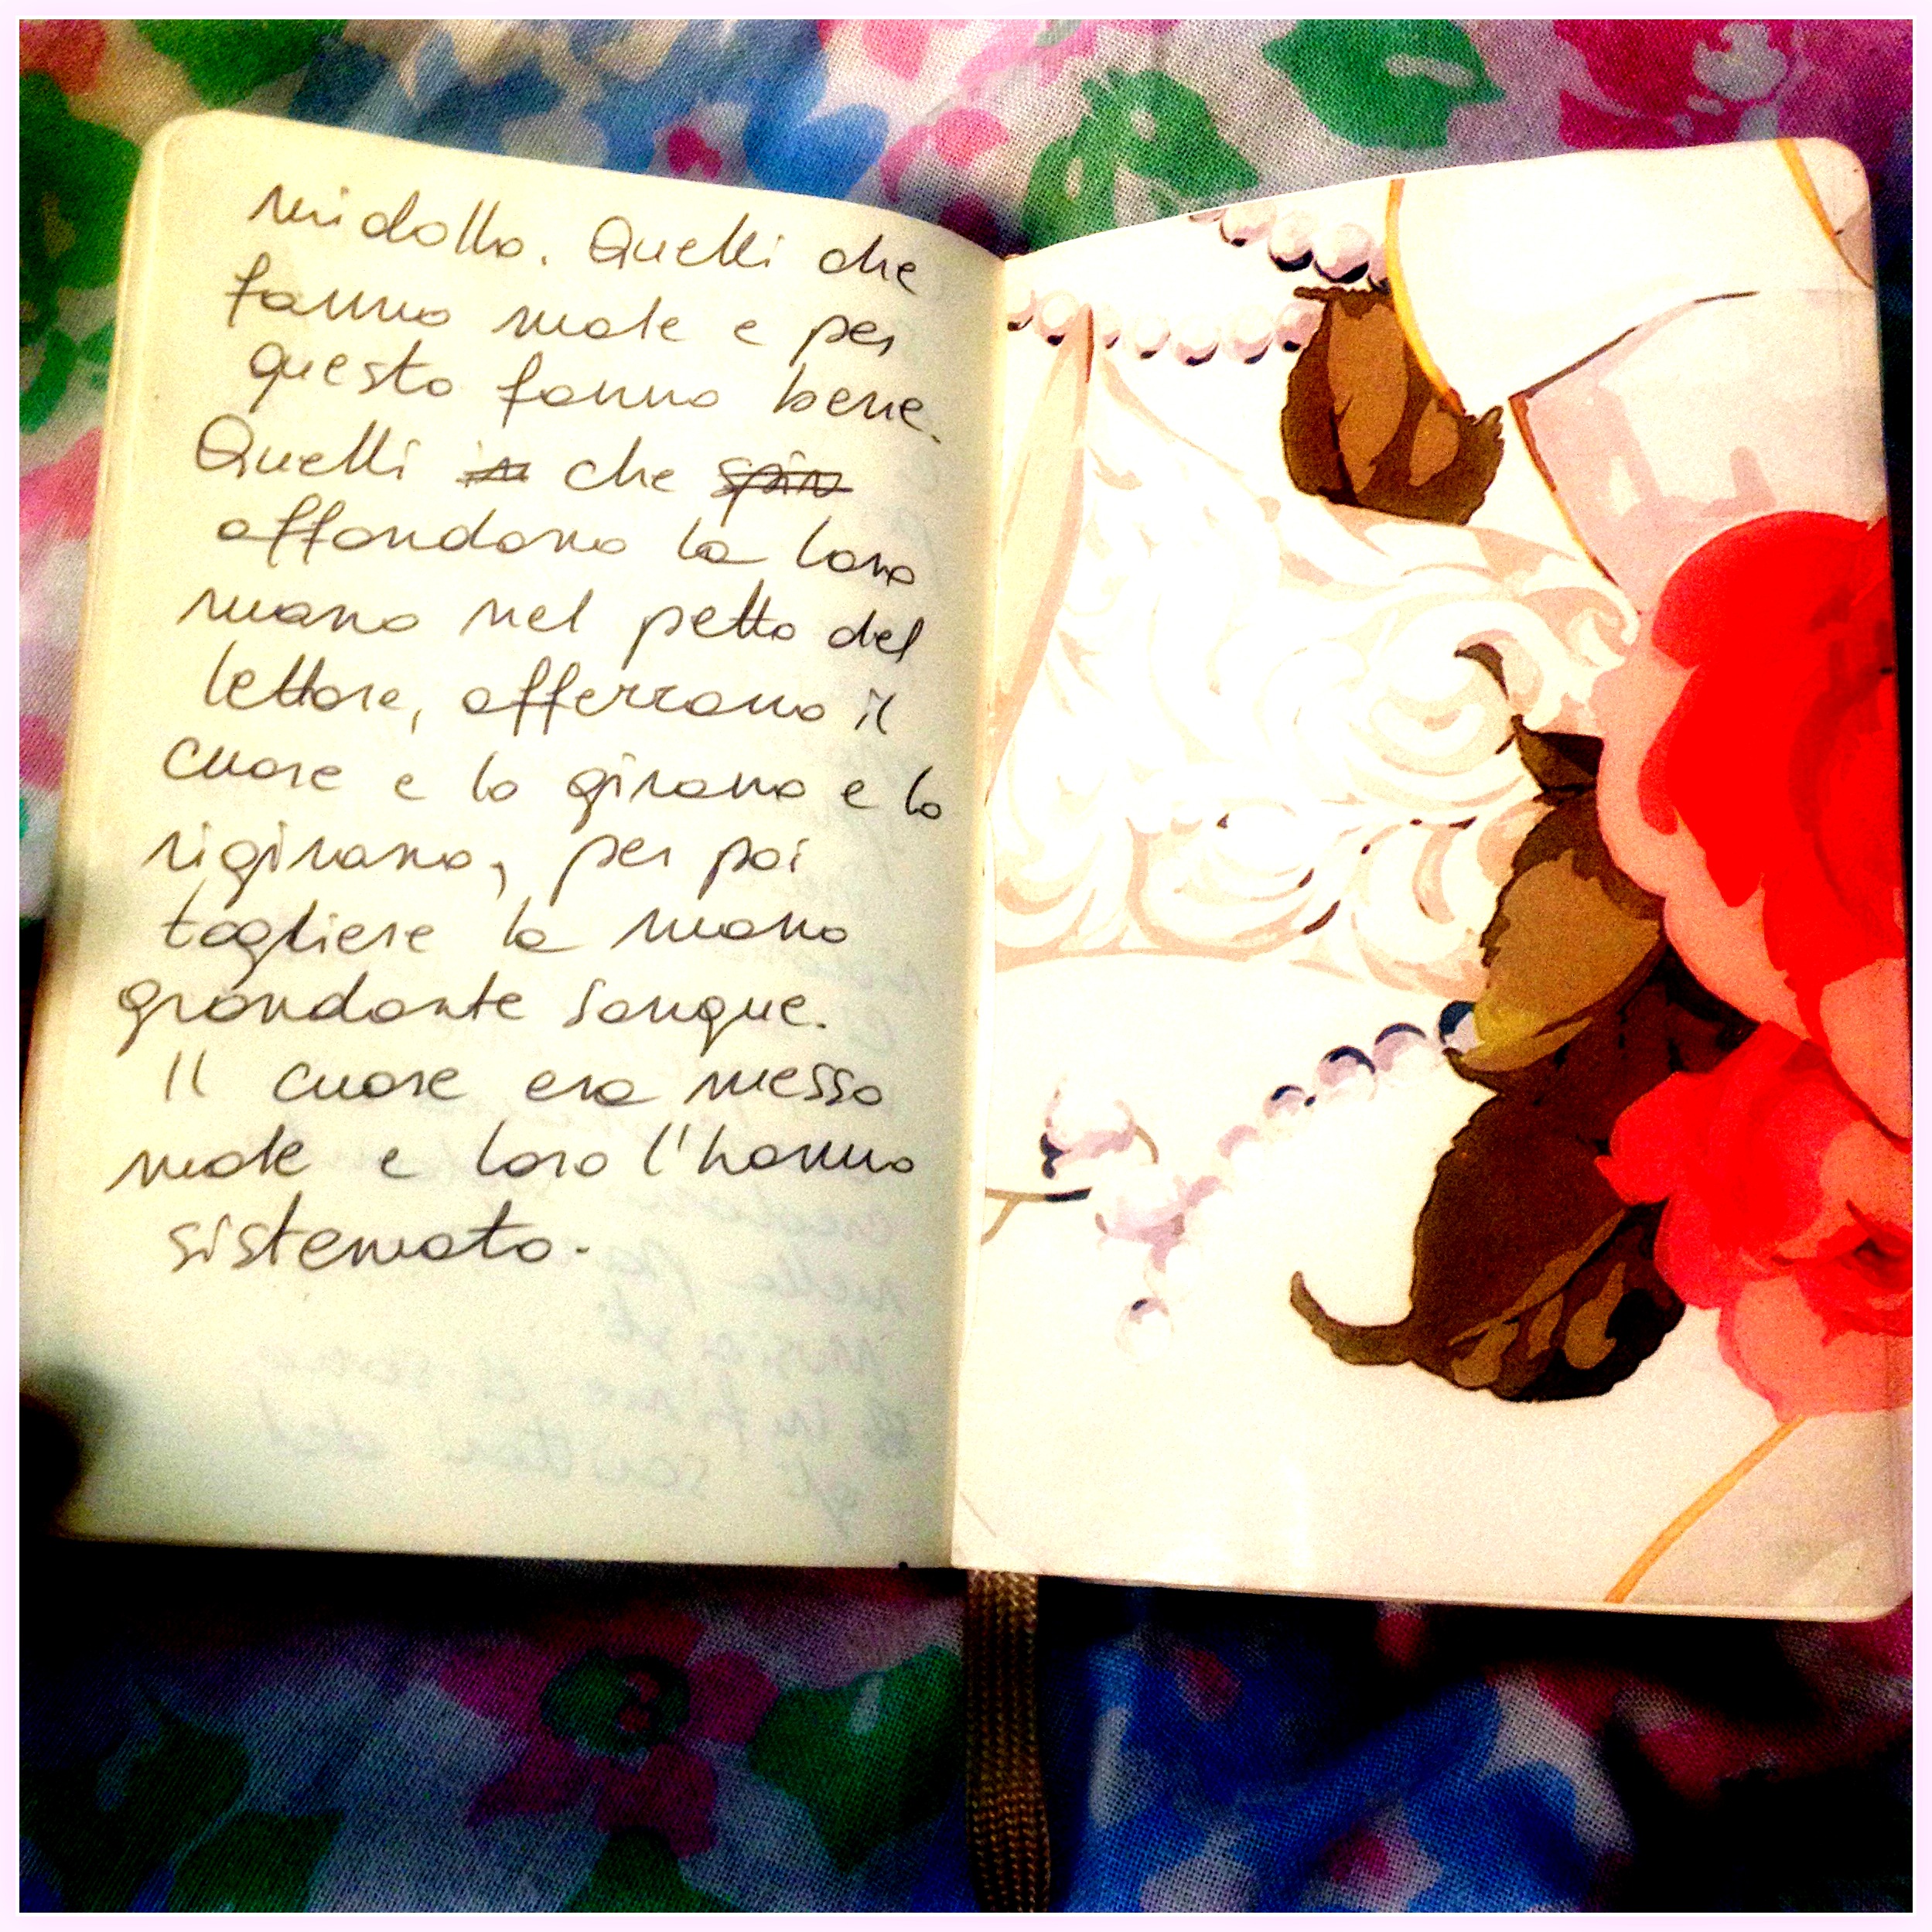 midollo. Quelli che
fanno male e per
questo fanno bene.
Quelli in che spin
affondano la loro
mano nel petto del
lettore, afferrano il
cuore e lo girano e lo
rigirano, per poi
togliere la mano
grondante sangue.
Il cuore era messo
male e loro l'hanno
sistemato.